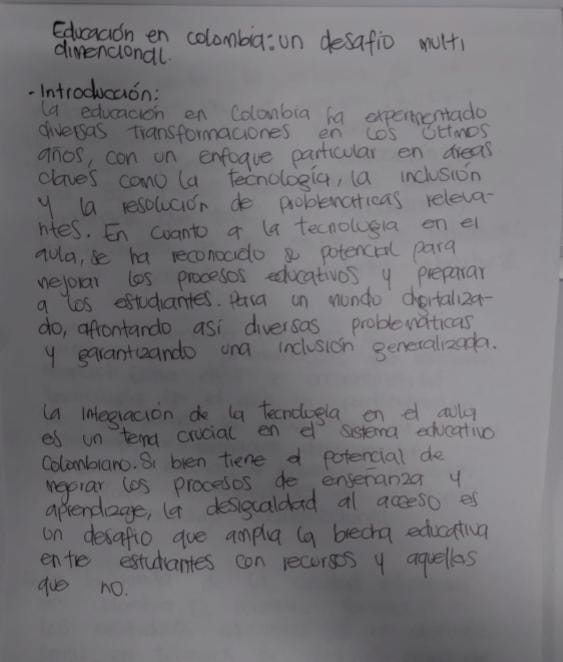 Educación en colombia: un desafío multi
dimencional.
- Introducción:
La educación en Colombia ha experimentado
diversas transformaciones en los últimos
años, con un enfoque particular en áreas
claves como la tecnología, la inclusión
y la resolución de problematicas releva-
ntes. En cuanto a la tecnologia en el
aula, se ha reconocido su potencial para
mejorar los procesos educativos y preparar
a los estudiantes. Para un mundo digitaliza-
do, afrontando así diversas problemáticas
y garantizando una inclusión generalizada.
La integración de la tecnología en el aula
es un tema crucial en el sistema educativo
Colombiano. Si bien tiene el potencial de
mejorar los procesos de enseñanza y
aprendizaje, la desigualdad al acceso es
un desafio que amplia la brecha educativa
entre estudiantes con recursos y aquellos
que no.